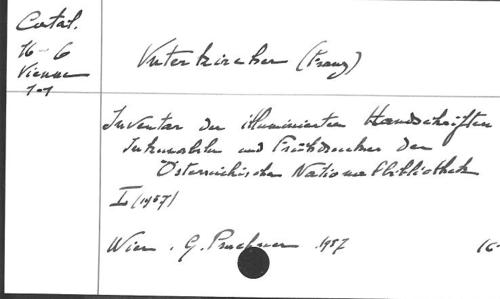 Catal.
16-6
Vienne
1-1
Unterkircher (Franz)
Inventar der illuminierten Handschriften
Inkunabeln und Frühdrucker der
Österreichischen Nationalbibliothek
I (1957)
Wien. G. Prachner 1957 16-